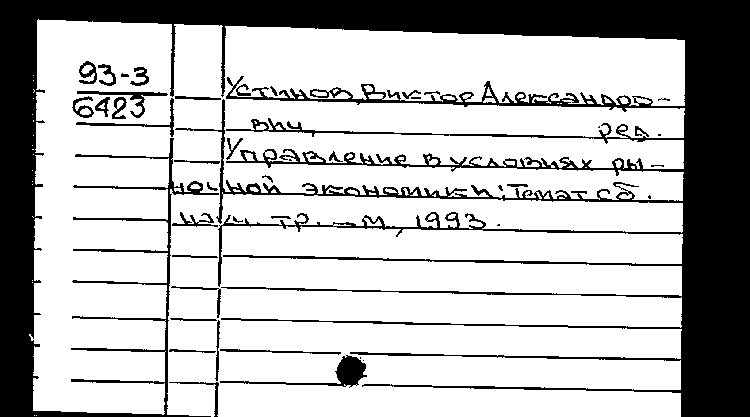 93-3
6423
Устинов, Виктор Александро-
вич, ред.
Управление в условиях ры-
ночной экономики: Темат. сб.
науч. тр. - М., 1993.